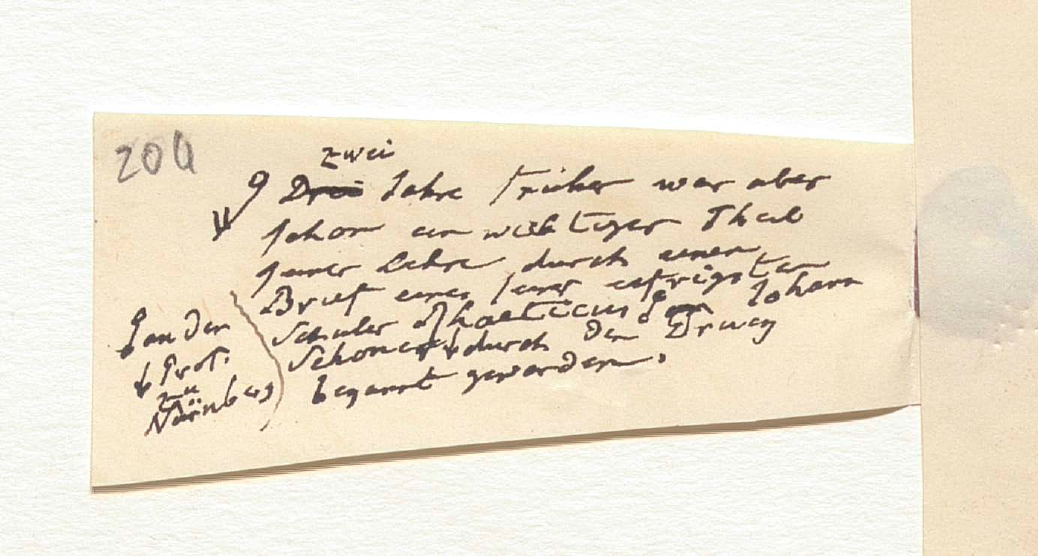 204
zwei
Drei Jahre früher war aber
schon ein wichtiger Theil
seiner Lehre durch einen
Brief eines seiner eifrigsten
Schüler Rhaeticus an Johann
Schoner durch den Druck
bekannt geworden.
an den
Prof.
zu
Nürnberg